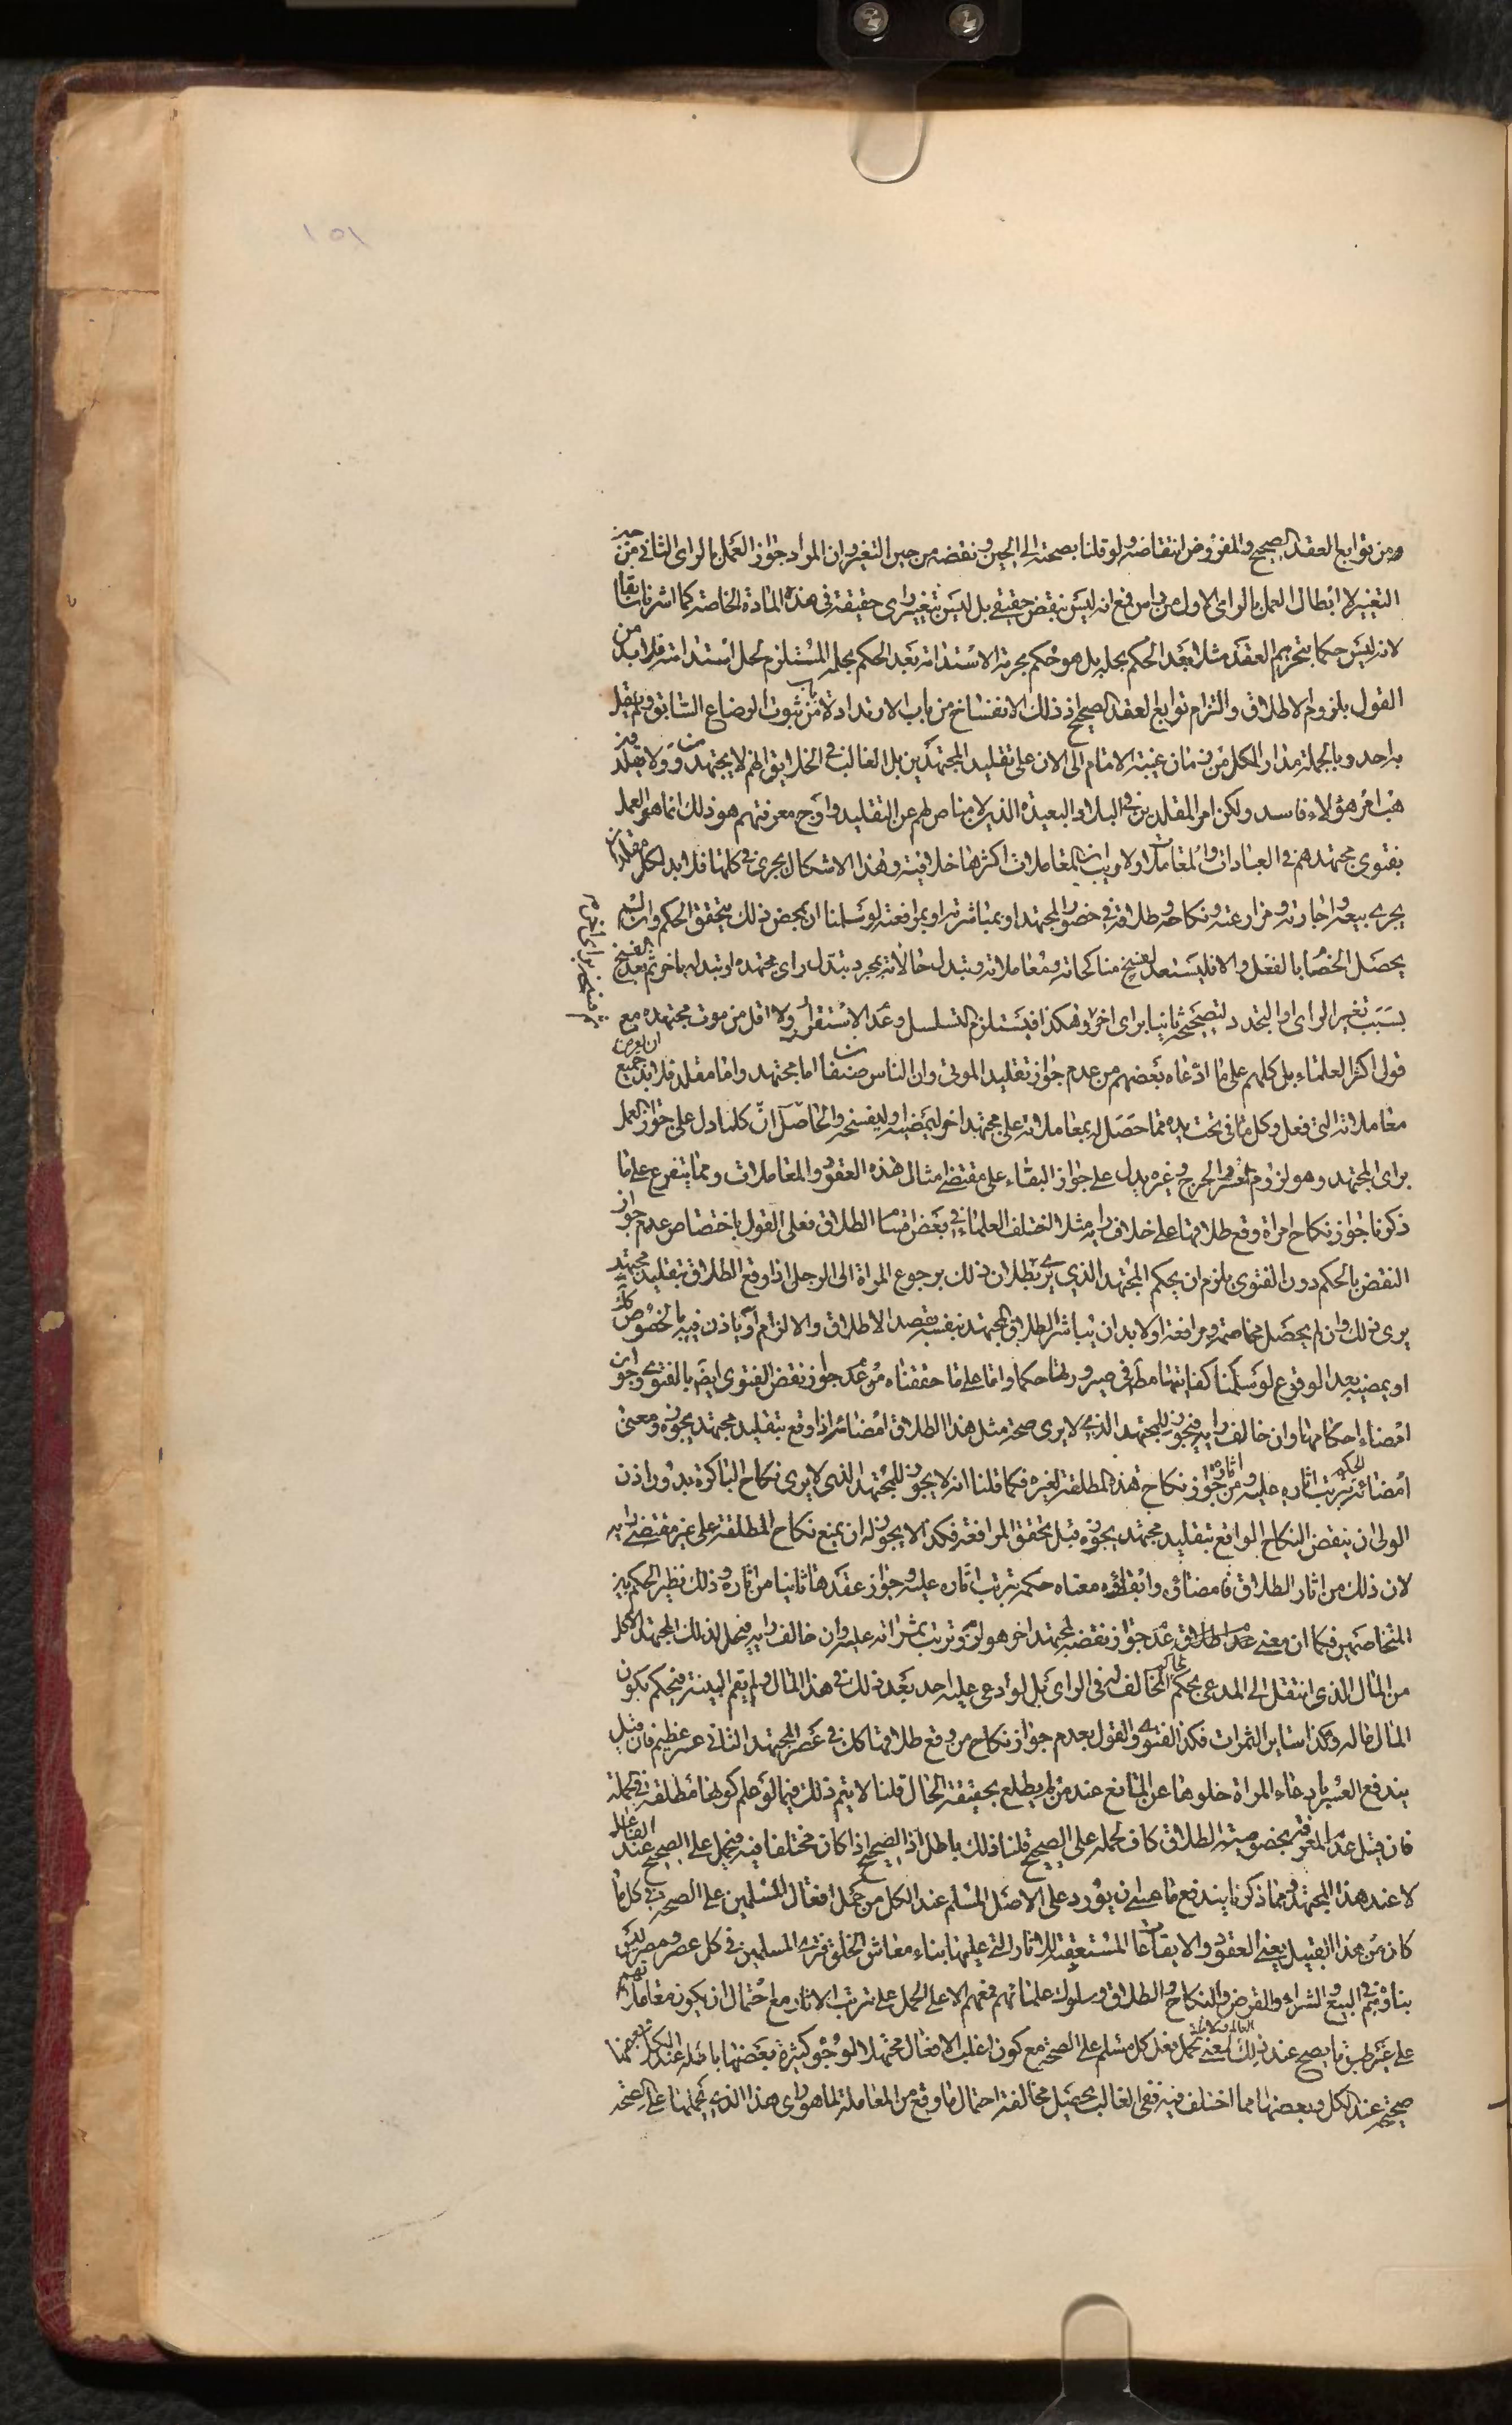 ١٥١
ومن توابع العقد الصحيح والمفروض انتقاضه ولو قلنا بصحته الى الحين ونقضه من حين التغير وان المراد جواز العمل بالراى الثانى من حين
التغيير لا ابطال العمل بالراى الاول من راس مع انه ليس بنقض حقيقى بل ليس بتغيير راى حقيقة فى هذه المادة الخاصة كما اشرنا سابقا
لانه ليس حكما بتحريم العقد مثلا بعد الحكم بحله بل هو حكم بحرمة الاستدامة بعد الحكم بحله المستلزم لحل استدامته فلا بد من
القول بلزوم الاطلاق والتزام توابع العقد الصحيح اذ ذلك الانفساخ من باب الارتداد لا من باب ثبوت الرضاع السابق ولم يقل
به احد وبالجملة مدار الكل من زمان غيبة الامام الى الان على تقليد المجتهدين بل الغالب فى الخلايق انهم لا يجتهدون ولا يقلدون
هب امر هؤلاء فاسد ولكن امر المقلدين فى البلاد البعيدة الذين لا مناص لهم عن التقليد واوج معرفتهم هو ذلك انما هو العمل
بفتوى مجتهدهم فى العبادات والمعاملات ولا ريب ان المعاملات اكثرها خلافية وهذا الاشكال يجرى فى كلها فلا بد لكل مقلد ان
يجرى بيعه واجارته ومزارعته ونكاحه وطلاقه فى حضور المجتهد او بمباشرته او بمرافعته لو سلمنا ان بمحض ذلك يتحقق الحكم وان لم
يحصل الخصام بالفعل والا فليستعد لفسخ مناكحاته ومعاملاته وتبدل حالاته بمجرد تبدل راى مجتهده او تبدله باخر ثم بعد الفسخ
بسبب تغير الراى او التجدد لتصحيحه ثانيا براى اخر وهكذا فيستلزم التسلسل وعدم الاستقرار ولا اقل من موت مجتهده مع
قول اكثر العلماء بل كلهم على ما ادعاه بعضهم من عدم جواز تقليد الموتى وان الناس صنفان اما مجتهد واما مقلد فلا بد ان يعرض جميع
معاملاته التى فعل وكل ما فى تحت يده مما حصل له بمعاملاته على مجتهد اخر ليمضيه او ليفسخه والحاصل ان كلما دل على جواز العمل
براى المجتهد وهو لزوم العسر والحرج وغيره يدل على جواز البقاء على مقتضى مثال هذه العقود والمعاملات ومما يتفرع على ما
ذكرنا جواز نكاح امراة وقع طلاقها على خلاف رايه مثلا اختلف العلماء فى بعض اقسام الطلاق فعلى القول باختصاص عدم جواز
النقض بالحكم دون الفتوى يلزم ان يحكم المجتهد الذى يرى بطلان ذلك برجوع المراة الى الرجل اذا وقع الطلاق بتقليد مجتهد
يرى ذلك وان لم يحصل مخاصمة ومرافعة او لا بد ان يباشر الطلاق المجتهد بنفسه بقصد الاطلاق والالزام او ياذن فيه بالخصوص كذلك
او يمضيه بعد الوقوع لو سلمنا كفايتها مط فى صيرورتها حكما واما على ما حققناه من عدم جواز نقض الفتوى ايضا بالفتوى وجواز
امضاء احكامها وان خالف رايه فيجوز للمجتهد الذى لا يرى صحة مثل هذا الطلاق امضائه اذا وقع بتقليد مجتهد يجوزه ومعنى
امضائه ترتب اثاره عليه ومن اثاره جواز نكاح هذه المطلقة لغيره فكما قلنا انه لا يجوز للمجتهد الذى لا يرى نكاح الباكرة بدون اذن
الولى ان ينقض النكاح الواقع بتقليد مجتهد يجوزه قبل تحقق المرافعة فكذا لا يجوز له ان يمنع نكاح المطلقة على غير مقتضى رايه
لان ذلك من اثار الطلاق فامضاؤه وابقاؤه معناه حكمه بترتب اثاره عليه وجواز عقدها ثانيا من اثاره وذلك نظير الحكم بين
المتخاصمين فكما ان معنى عدم جواز نقضه لمجتهد اخر هو لزوم ترتب ثمراته عليه وان خالف رايه فيحل لذلك المجتهد الاكل
من المال الذى انتقل الى المدعى بحكم الحاكم المخالف له فى الراى بل لو ادعى عليه احد بعد ذلك فى هذا المال ولم يقم البينة فيحكم بكون
المال ماله وهكذا ساير الثمرات فكذا الفتوى والقول بعدم جواز نكاح من وقع طلاقها كذلك فى عصر المجتهد الثانى عسر عظيم فان قيل
يندفع العسر بادعاء المراة خلوها عن المانع عند من لم يطلع بحقيقة الحال قلنا لا يتم ذلك فيما لو علم كونها مطلقة فى الجملة
فان قيل عدم المعرفة بخصوصية الطلاق كاف لحمله على الصحيح قلنا ذلك باطل اذ الصحيح اذا كان مختلفا فيه فيحمل على الصحيح عند الفاعل
لا عند هذا المجتهد ومما ذكرنا يندفع ما عسى ان يورد على الاصل المسلم عند الكل من حمل افعال المسلمين على الصحة فى كل ما
كان من هذا القبيل يعنى العقود والايقاعات المستعقبة للاثار التى عليها بناء معاش الخلق فترى المسلمين فى كل عصر ومصر ليس
بناؤهم فى البيع والشراء والقرض والنكاح والطلاق وسلوك علمائهم معهم الا على الحمل على ترتب الاثار مع احتمال ان يكون معاملاتهم
على غير طبق ما يصح عند ذلك العالم يعنى يحمل فعل كل مسلم على الصحة مع كون اغلب الافعال محتملا لوجوه كثيرة بعضها باطلة عند الكل وبعضها
صحيحة عند الكل وبعضها مما اختلف فيه ففى الغالب يحصل مخالفة احتمال ما وقع من المعاملة لما هو راى هذا الذى يحملها على الصحة